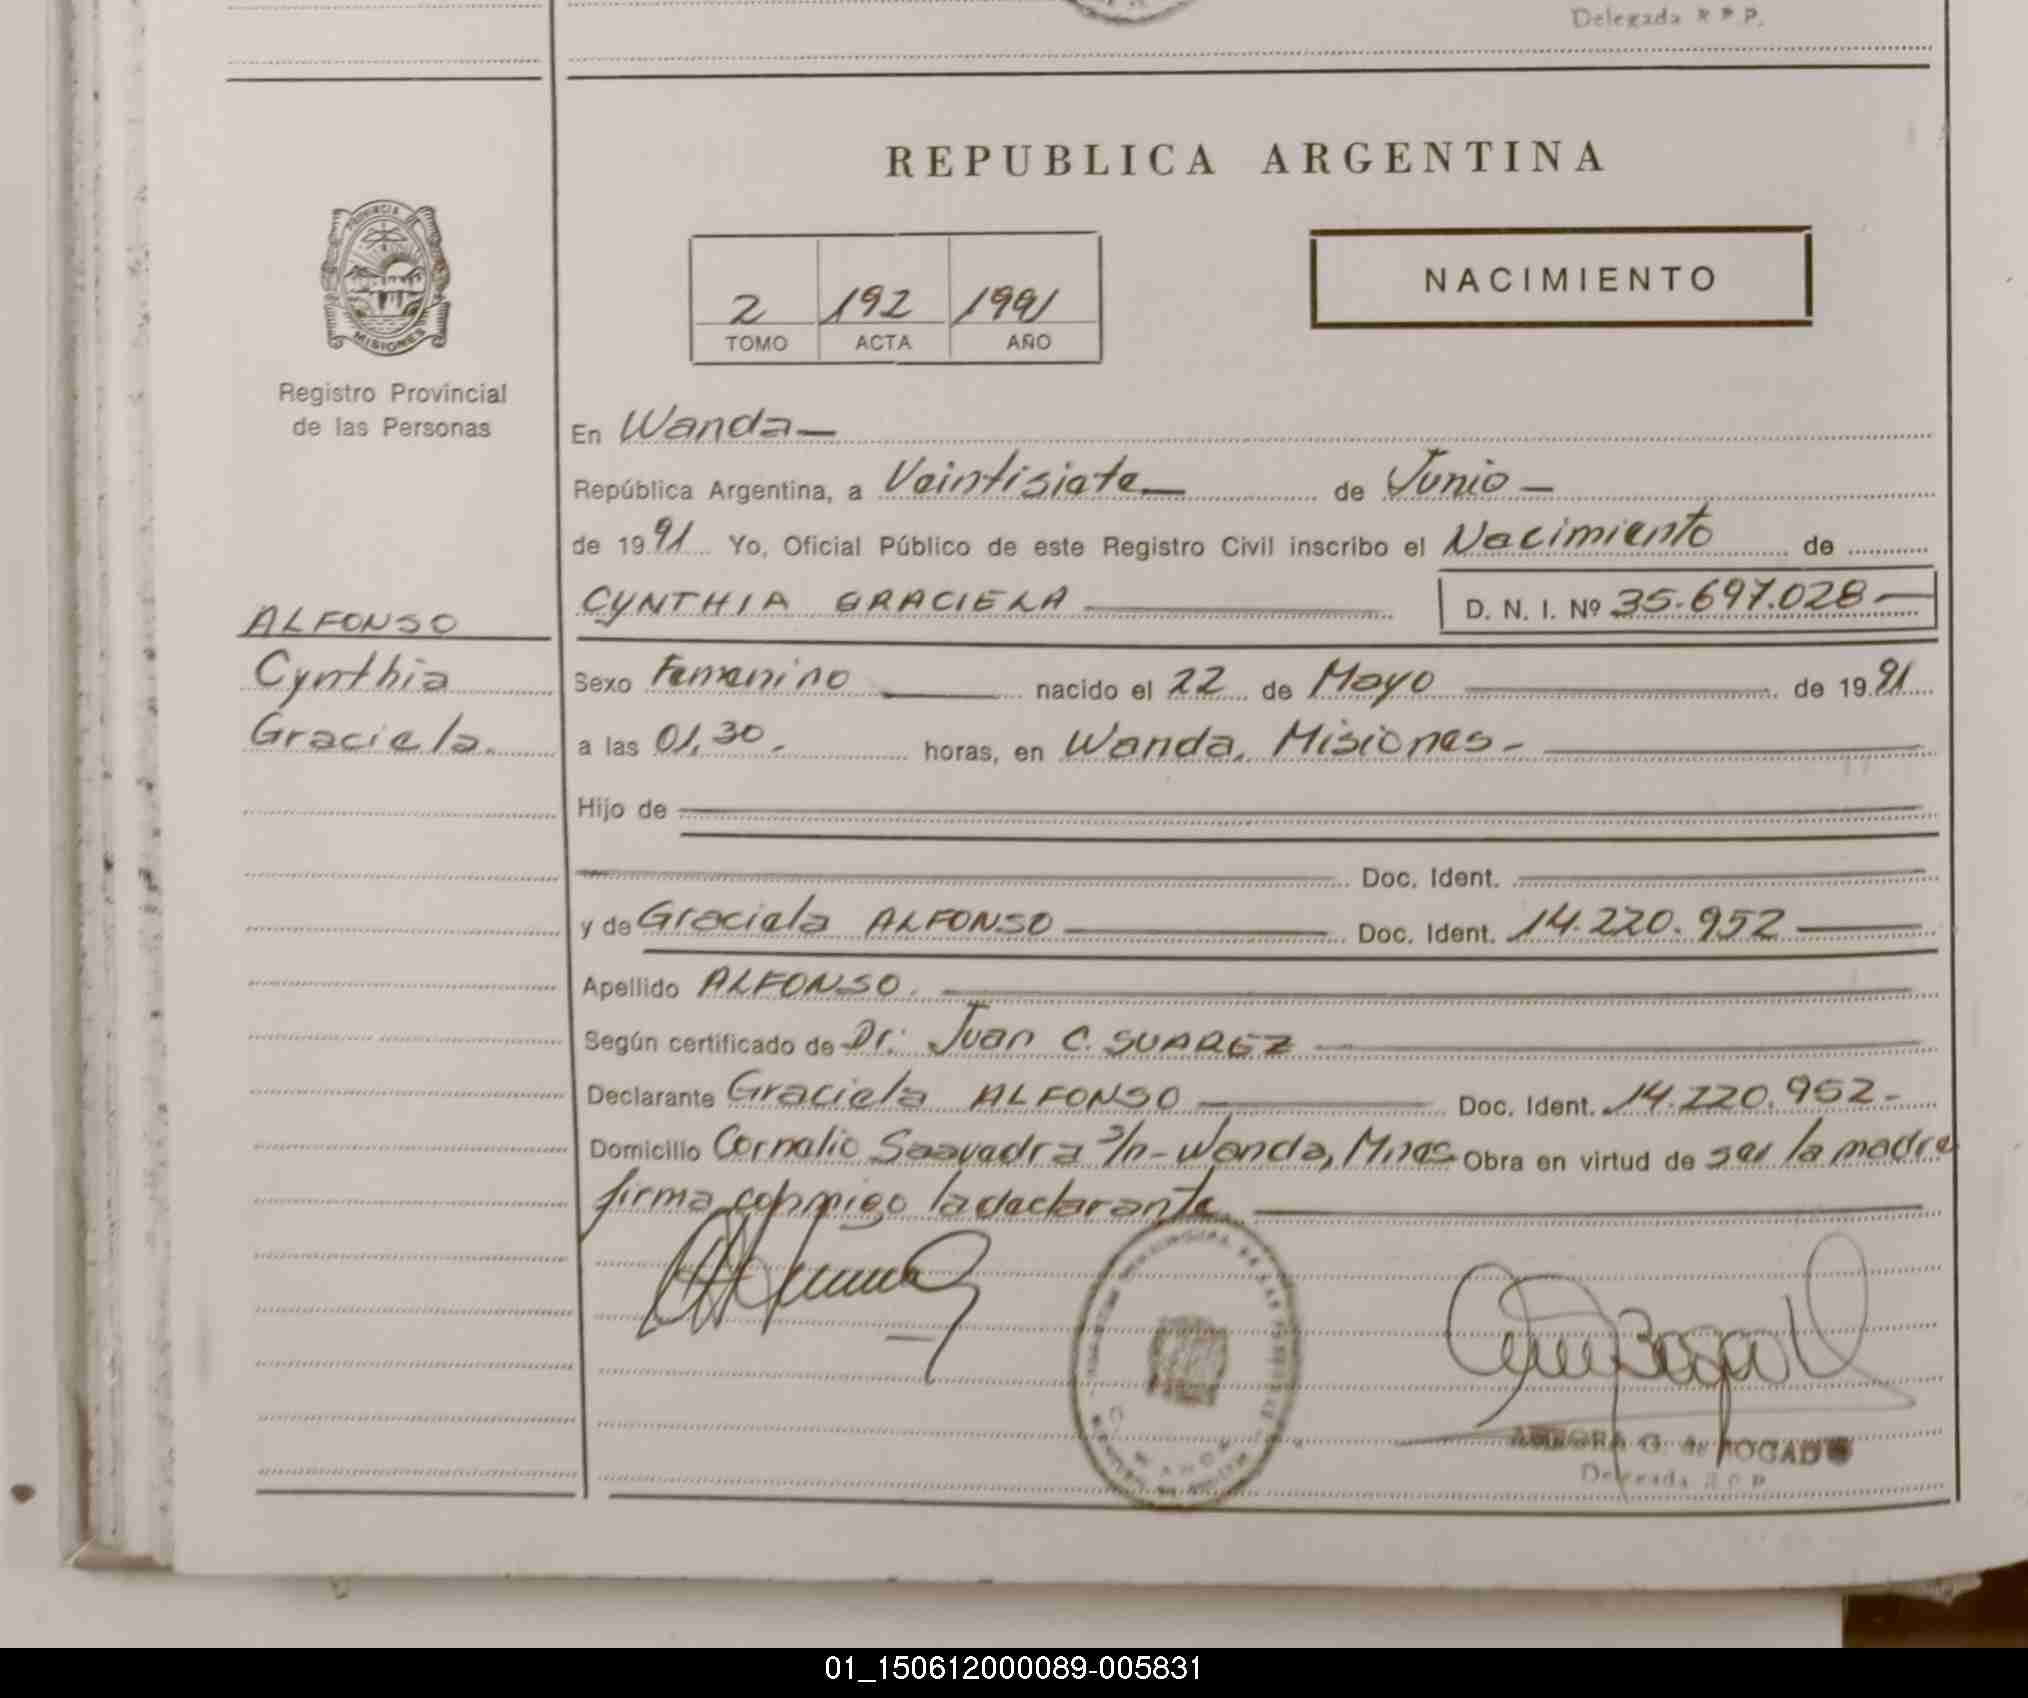 Delegada R P P.
REPUBLICA ARGENTINA
PROVINCIA DE
MISIONES
Registro Provincial
de las Personas
2 192 1991
TOMO ACTA AÑO
NACIMIENTO
En Wanda—
República Argentina, a Veintisiete— de Junio—
de 1991 Yo, Oficial Público de este Registro Civil inscribo el Nacimiento de
CYNTHIA GRACIELA D. N. I. Nº 35.697.028—
ALFONSO
Cynthia
Graciela.
Sexo Femenino nacido el 22 de Mayo de 1991
a las 01,30.- horas, en Wanda, Misiones-
Hijo de
Doc. Ident.
y de Graciela ALFONSO Doc. Ident. 14.220.952
Apellido ALFONSO.
Según certificado de Dr. Juan C. SUAREZ
Declarante Graciela ALFONSO Doc. Ident. 14.220.952-
Domicilio Cornelio Saavedra s/n-Wanda, Mnes Obra en virtud de ser la madre
firma conmigo la declarante
WANDA
G. de BOGADO
Delegada R P P
01_150612000089-005831